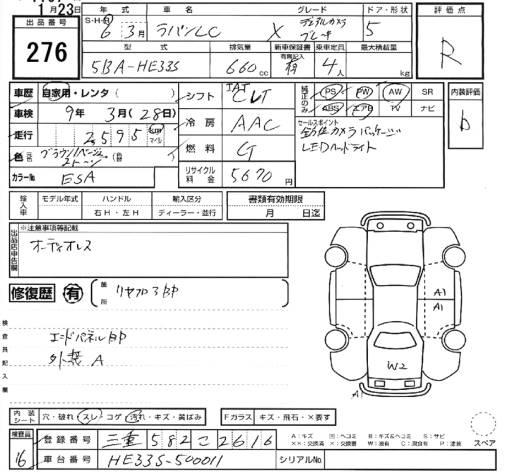 月23日
出品番号
276
年式 車名 グレード ドア・形状 評価点
S・H・R 6年 3月 ラパンLC X デュアルカメラブレーキ 5 R
型式 排気量 新車保証書 乗車定員 最大積載量
有無記入
5BA-HE33S 660cc 有 4人 kg
車歴 自家用・レンタ( )
車検 9年 3月(28日)
走行 2595 km マイル
色 ブラウン/ベージュ2トーン
カラーNo ESA
シフト IAT CVT
冷房 AAC
燃料 G
リサイクル料金 5670円
純正のみ PS PW AW SR
ABS エアB TV ナビ
セールスポイント
全方位カメラパッケージ
LEDヘッドライト
内装評価
b
輸入車 モデル年式 ハンドル 輸入区分 書類有効期限
右H・左H ディーラー・並行 月 日迄
出品店申告欄
※注意事項等記載
オーディオレス
修復歴 有 箇所 リヤフロアBP
検査員記入欄
エンドパネルBP
外装 A
A1
A1
W2
A1
内装シート 穴・破れ・スレ・コゲ・汚れ・キズ・黄ばみ Fガラス キズ・飛石・×要す
検査員 16
登録番号 三重 582 こ 2616
車台番号 HE33S-500011 シリアルNo.
A:キズ U:ヘコミ B:キズ&ヘコミ S:サビ
××:交換済 W:波有 C:腐食有 P:塗装 スペア